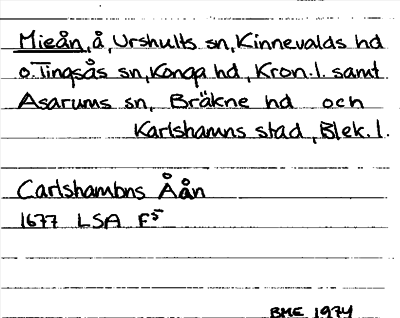 Mieån, å, Urshults sn, Kinnevalds hd
o. Tingsås sn, Konga hd, Kron.l. samt
Asarums sn, Bräkne hd och
Karlshamns stad, Blek.l.
Carlshambns Åån
1677 LSA F⁵
BME 1974